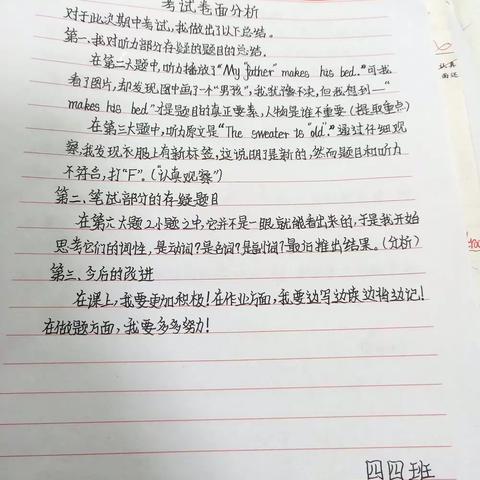 考试卷面分析
对于此次期中考试，我做出了以下总结。
第一、我对听力部分存疑的题目的总结.
在第二大题中，听力播放了“My "father" makes his bed.”可我
看了图片，却发现图中画了一个“男孩”，我就犹豫不决，但我想到一“
makes his bed”才是题目的真正要素，人物是谁不重要（提取重点）
在第三大题中，听力原文是“The sweater is "old".”通过仔细观
察，我发现衣服上有新标签，这说明了是新的，然而题目和听力
不符合，打“F”。（“认真观察”）
第二、笔试部分的存疑题目
在第六大题2小题之中，它并不是一眼就能看出来的，于是我开始
思考它们的词性，是动词？是名词？是副词？最后推出结果。（分析）
第三、今后的改进
在课上，我要更加积极！在作业方面，我要边写边读边背边记！
在做题方面，我要多多努力！
四四班
认真